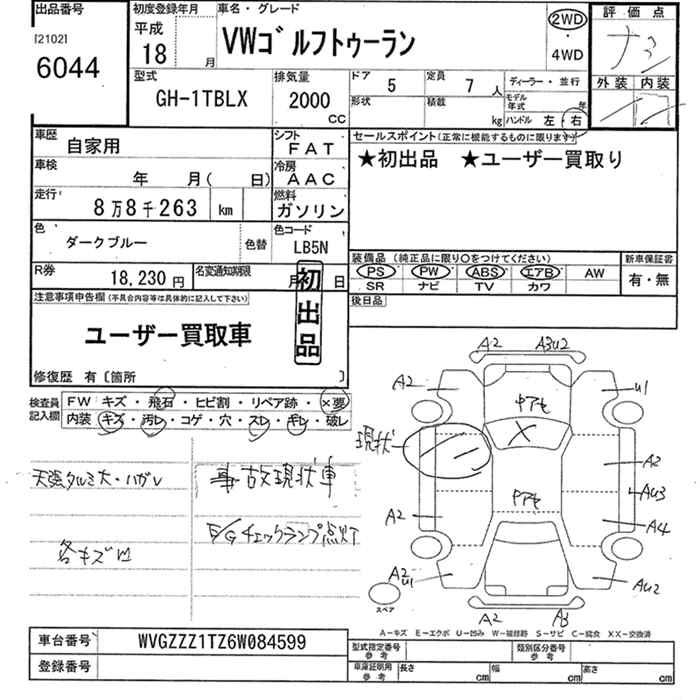 出品番号
[2102]
6044
初度登録年月
平成
18 月
車名・グレード
VWゴルフトゥーラン
2WD
・
4WD
評価点
外装 内装
型式
GH-1TBLX
排気量
2000
CC
ドア 5
定員 7 人
ディーラー・並行
形状
積載 kg
モデル年式 年
ハンドル 左・右
車歴
自家用
シフト
FAT
車検
年 月( 日)
冷房
AAC
走行
8万8千263 km
燃料
ガソリン
色
ダークブルー
色替
色コード
LB5N
R券
18,230 円
名変通知期限
月 日
初出品
セールスポイント(正常に機能するものに限ります)
★初出品 ★ユーザー買取り
装備品 (純正品に限り〇をつけてください)
PS PW ABS エアB AW
SR ナビ TV カワ
新車保証書
有・無
後日品
注意事項申告欄(不具合内容等は具体的に記入して下さい)
ユーザー買取車
修復歴 有〔箇所 〕
検査員
記入欄
FW キズ・飛石・ヒビ割・リペア跡・×要
内装 キズ・汚レ・コゲ・穴・スレ・ギレ・破レ
天張タルミ大・ハガレ
事故現状車
E/Gチェックランプ点灯
各キズ凹
現状
A2 A3U2
A2 U1
中アセ
A2
AU3
中アセ
A2 A4
A2 U1
AU2
A2 A3
スペア
A-キズ E-エクボ U-凹み W-補修跡 S-サビ C-腐食 XX-交換済
車台番号
WVGZZZ1TZ6W084599
登録番号
型式指定番号
参考
類別区分番号
参考
車庫証明用
参考
長さ cm 幅 cm 高さ cm